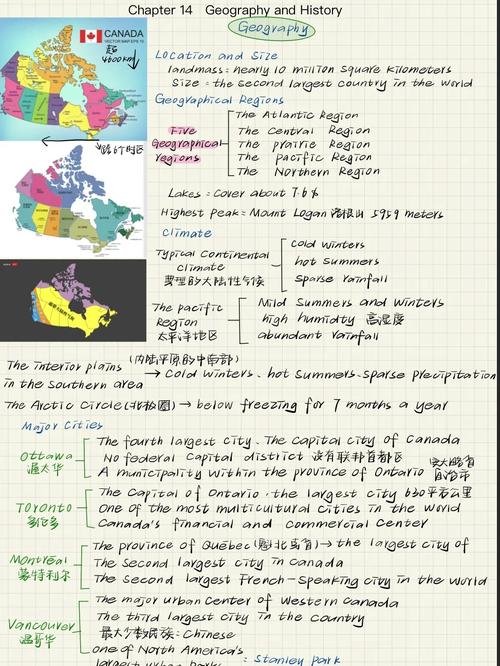 Chapter 14 Geography and History
Geography
CANADA
超
4600km
跨6个时区
Location and Size
landmass: nearly 10 million square kilometers
Size: the second largest country in the world
Geographical Regions
Five Geographical regions
The Atlantic Region
The Central Region
The prairie Region
The pacific Region
The Northern Region
Lakes: Cover about 7.6%
Highest Peak: Mount Logan 洛根山 5959 meters
climate
Typical Continental climate
典型的大陆性气候
cold winters
hot summers
sparse rainfall
The pacific Region
太平洋地区
Mild Summers and Winters
high humidity 高湿度
abundant rainfall
The interior plains (内陆平原的中南部)
in the Southern area → cold winters、hot Summers、Sparse precipitation
The Arctic Circle (北极圈) → below freezing for 7 months a year
Major Cities
Ottawa
渥太华
The fourth largest city、The capital city of Canada
No federal Capital district 没有联邦首都区
A municipality within the province of Ontario 安大略省自治市
Toronto
多伦多
The Capital of Ontario · the largest city 630平方公里
One of the most multicultural cities in the world
Canada's financial and commercial Center
Montréal
蒙特利尔
The province of Québec (魁北克省) → the largest city of
The Second largest city in Canada
The Second largest French-Speaking city in the world
Vancouver
温哥华
The major urban Center of Western Canada
The third largest city in the country
最大少数民族: Chinese
one of North America's
largest urban parks : Stanley park